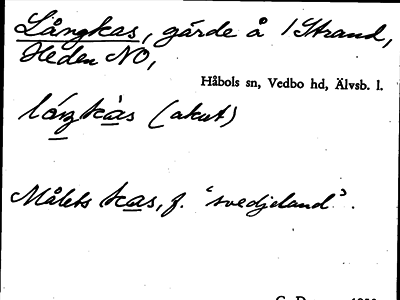 Långkas, gärde å 1 Strand,
Heden NO,
Håbols sn, Vedbo hd, Älvsb. l.
(akut)
Målets kas, f. "svedjeland".